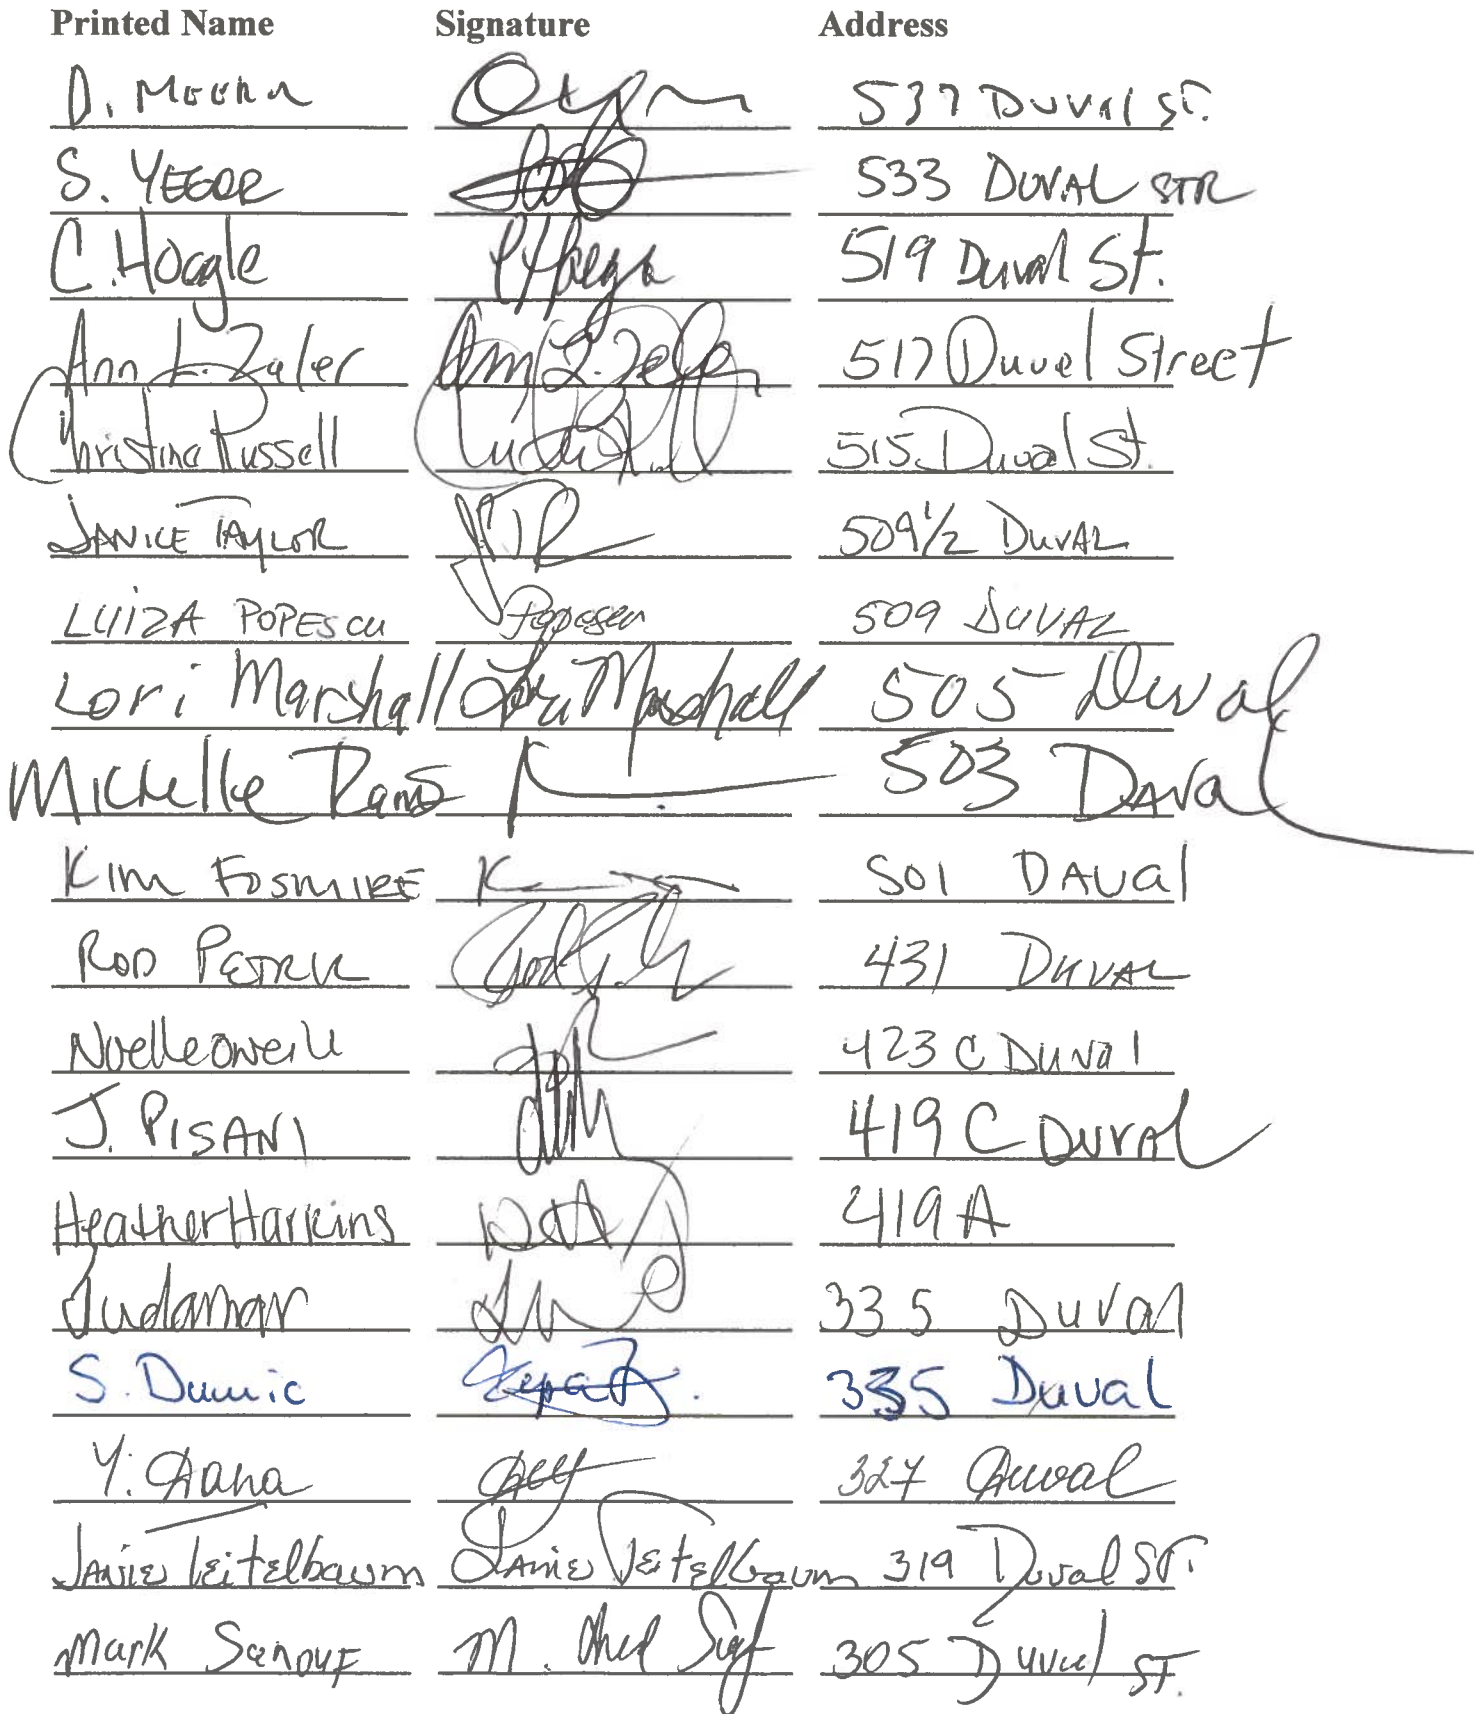 Printed Name Signature Address
D. 537 Duval ST.
S. YEGOR 533 DUVAL STR
C. Hoagle 519 Duval St.
Ann L. Zaler 517 Duvel Street
Christina Russell 515 Duval St.
JANICE TAYLOR 509 1/2 DUVAL
LUIZA POPESCU Popescu 509 DUVAL
Lori Marshall Lori Marshall 505 Duval
Michelle 503 DAval
Kim FOSMIRE K 501 DAUal
ROD PETRUK 431 DUVAL
Noelle oneill 423 C Duval
J. PISANI 419 C DUVAL
Heather Harkins 419 A
335 Duval
S. Dunic 335 Duval
Y. 327 Duval
JANIE Teitelbaum Janie Teitelbaum 319 Duval ST.
Mark Sanouf M. 305 Duvel ST.